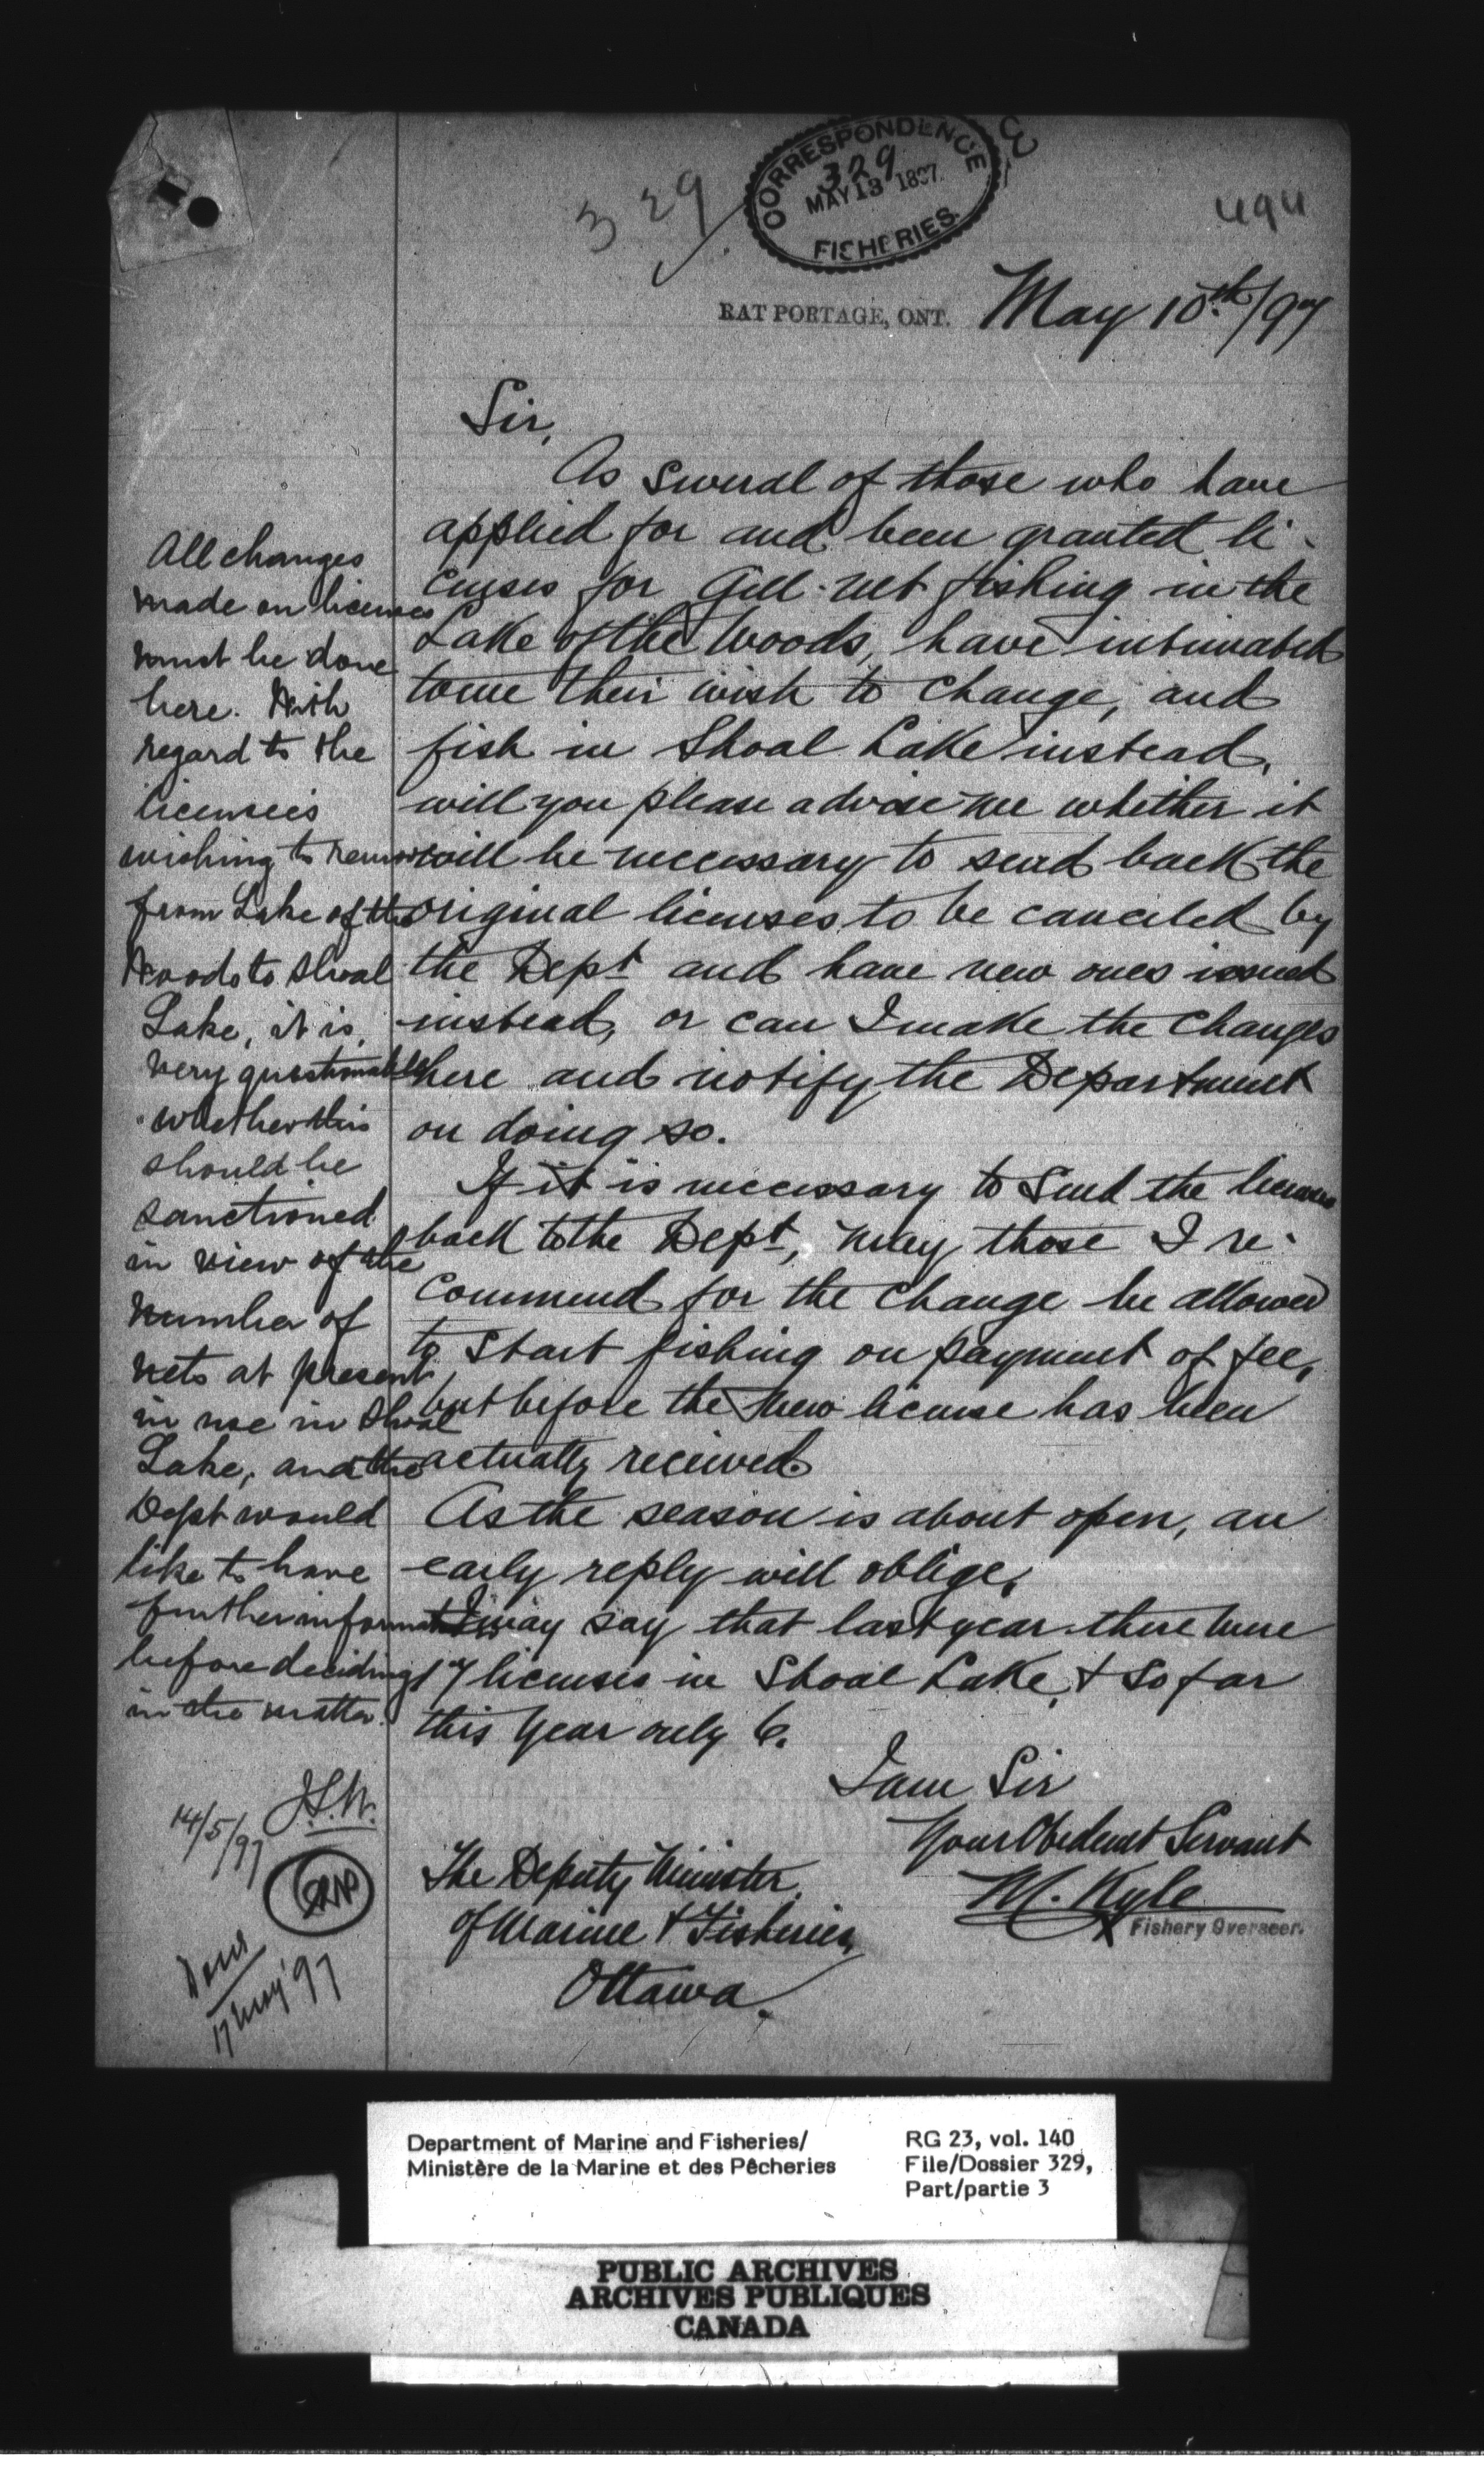 CORRESPONDENCE
329
MAY 13 1897.
FISHERIES.
329
494
RAT PORTAGE, ONT. May 10th/97
Sir,
As several of those who have
applied for and been granted li-
censes for Gill-net fishing in the
Lake of the Woods, have intimated
to me their wish to change, and
fish in Shoal Lake instead,
will you please advise me whether it
will be necessary to send back the
original licenses to be canceled by
the Dept and have new ones issued
instead, or can I make the changes
here and notify the Department
on doing so.
If it is necessary to send the licenses
back to the Dept, may those I re-
commend for the change be allowed
to start fishing on payment of fee,
but before the new license has been
actually received.
As the season is about open, an
early reply will oblige.
I may say that last year there were
17 licenses in Shoal Lake, & so far
this year only 6.
I am Sir
Your Obedient Servant
M. Kyle
Fishery Overseer.
The Deputy Minister
of Marine & Fisheries,
Ottawa.
All changes
made on licenses
must be done
here. With
regard to the
licensees
wishing to remove
from Lake of the
Woods to Shoal
Lake, it is
very questionable
whether this
should be
sanctioned
in view of the
number of
nets at present
in use in Shoal
Lake, and the
Dept would
like to have
further information
before deciding
in the matter.
14/5/97
Done
17 May '97
Department of Marine and Fisheries/
Ministère de la Marine et des Pêcheries
RG 23, vol. 140
File/Dossier 329,
Part/partie 3
PUBLIC ARCHIVES
ARCHIVES PUBLIQUES
CANADA